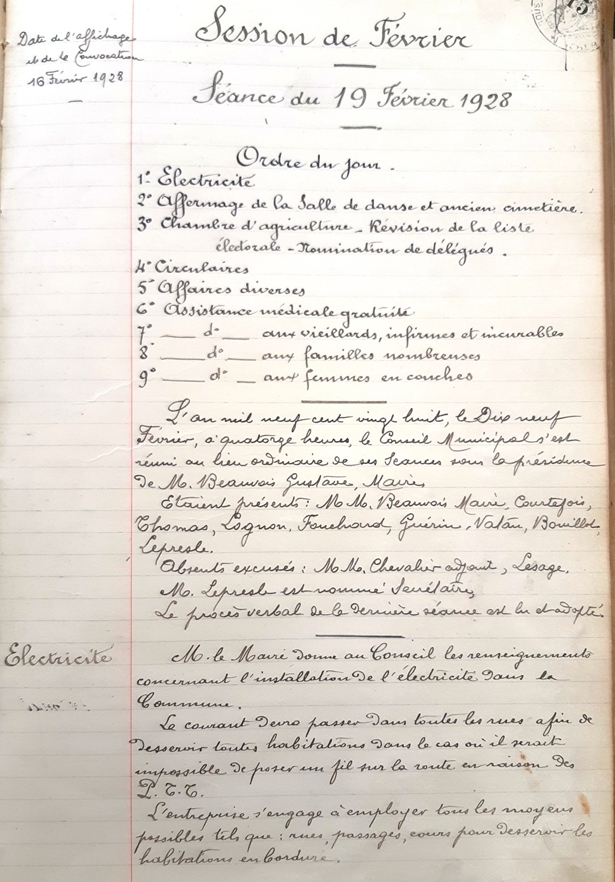 Date de l'affichage
et de la Convocation
16 Février 1928
Session de Février
Séance du 19 Février 1928
Ordre du jour.
1º Electricité
2º Affermage de la Salle de danse et ancien cimetière.
3º Chambre d'agriculture - Révision de la liste
électorale - Nomination de délégués.
4º Circulaires
5º Affaires diverses
6º Assistance médicale gratuite
7º — dº — aux vieillards, infirmes et incurables
8 — dº — aux familles nombreuses
9º — dº — aux femmes en couches
L'an mil neuf cent vingt huit, le Dix neuf
Février, à quatorze heures, le Conseil Municipal s'est
réuni au lieu ordinaire de ses Séances sous la présidence
de M. Beauvois Gustave, Maire,
Etaient présents : MM. Beauvois Maire, Courtefois,
Thomas, Lognon, Fouchard, Guérin, Vatan, Bouillot,
Lepresle.
Absents excusés : MM. Chevalier adjoint, Lesage.
M. Lepresle est nommé Secrétaire,
Le procès verbal de la dernière séance est lu et adopté
Electricité
M. le Maire donne au Conseil les renseignements
concernant l'installation de l'électricité dans la
Commune.
Le courant devra passer dans toutes les rues afin de
desservir toutes habitations dans le cas où il serait
impossible de poser un fil sur la route en raison des
P.T.T.
L'entreprise s'engage à employer tous les moyens
possibles tels que : rues, passages, cours pour desservir les
habitations en bordure.